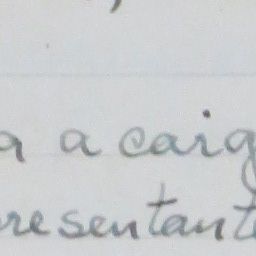 a a carg
resentante